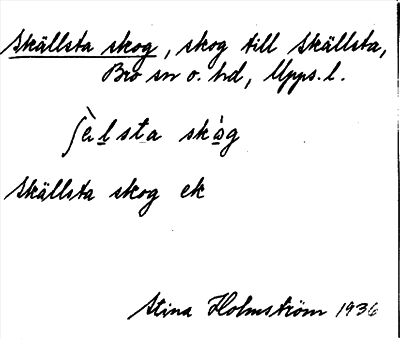 Skällsta skog, skog till Skällsta,
Bro sn o. hd, Upps. l.
ʃèlsta skåg
Skällsta skog ek
Stina Holmström 1936